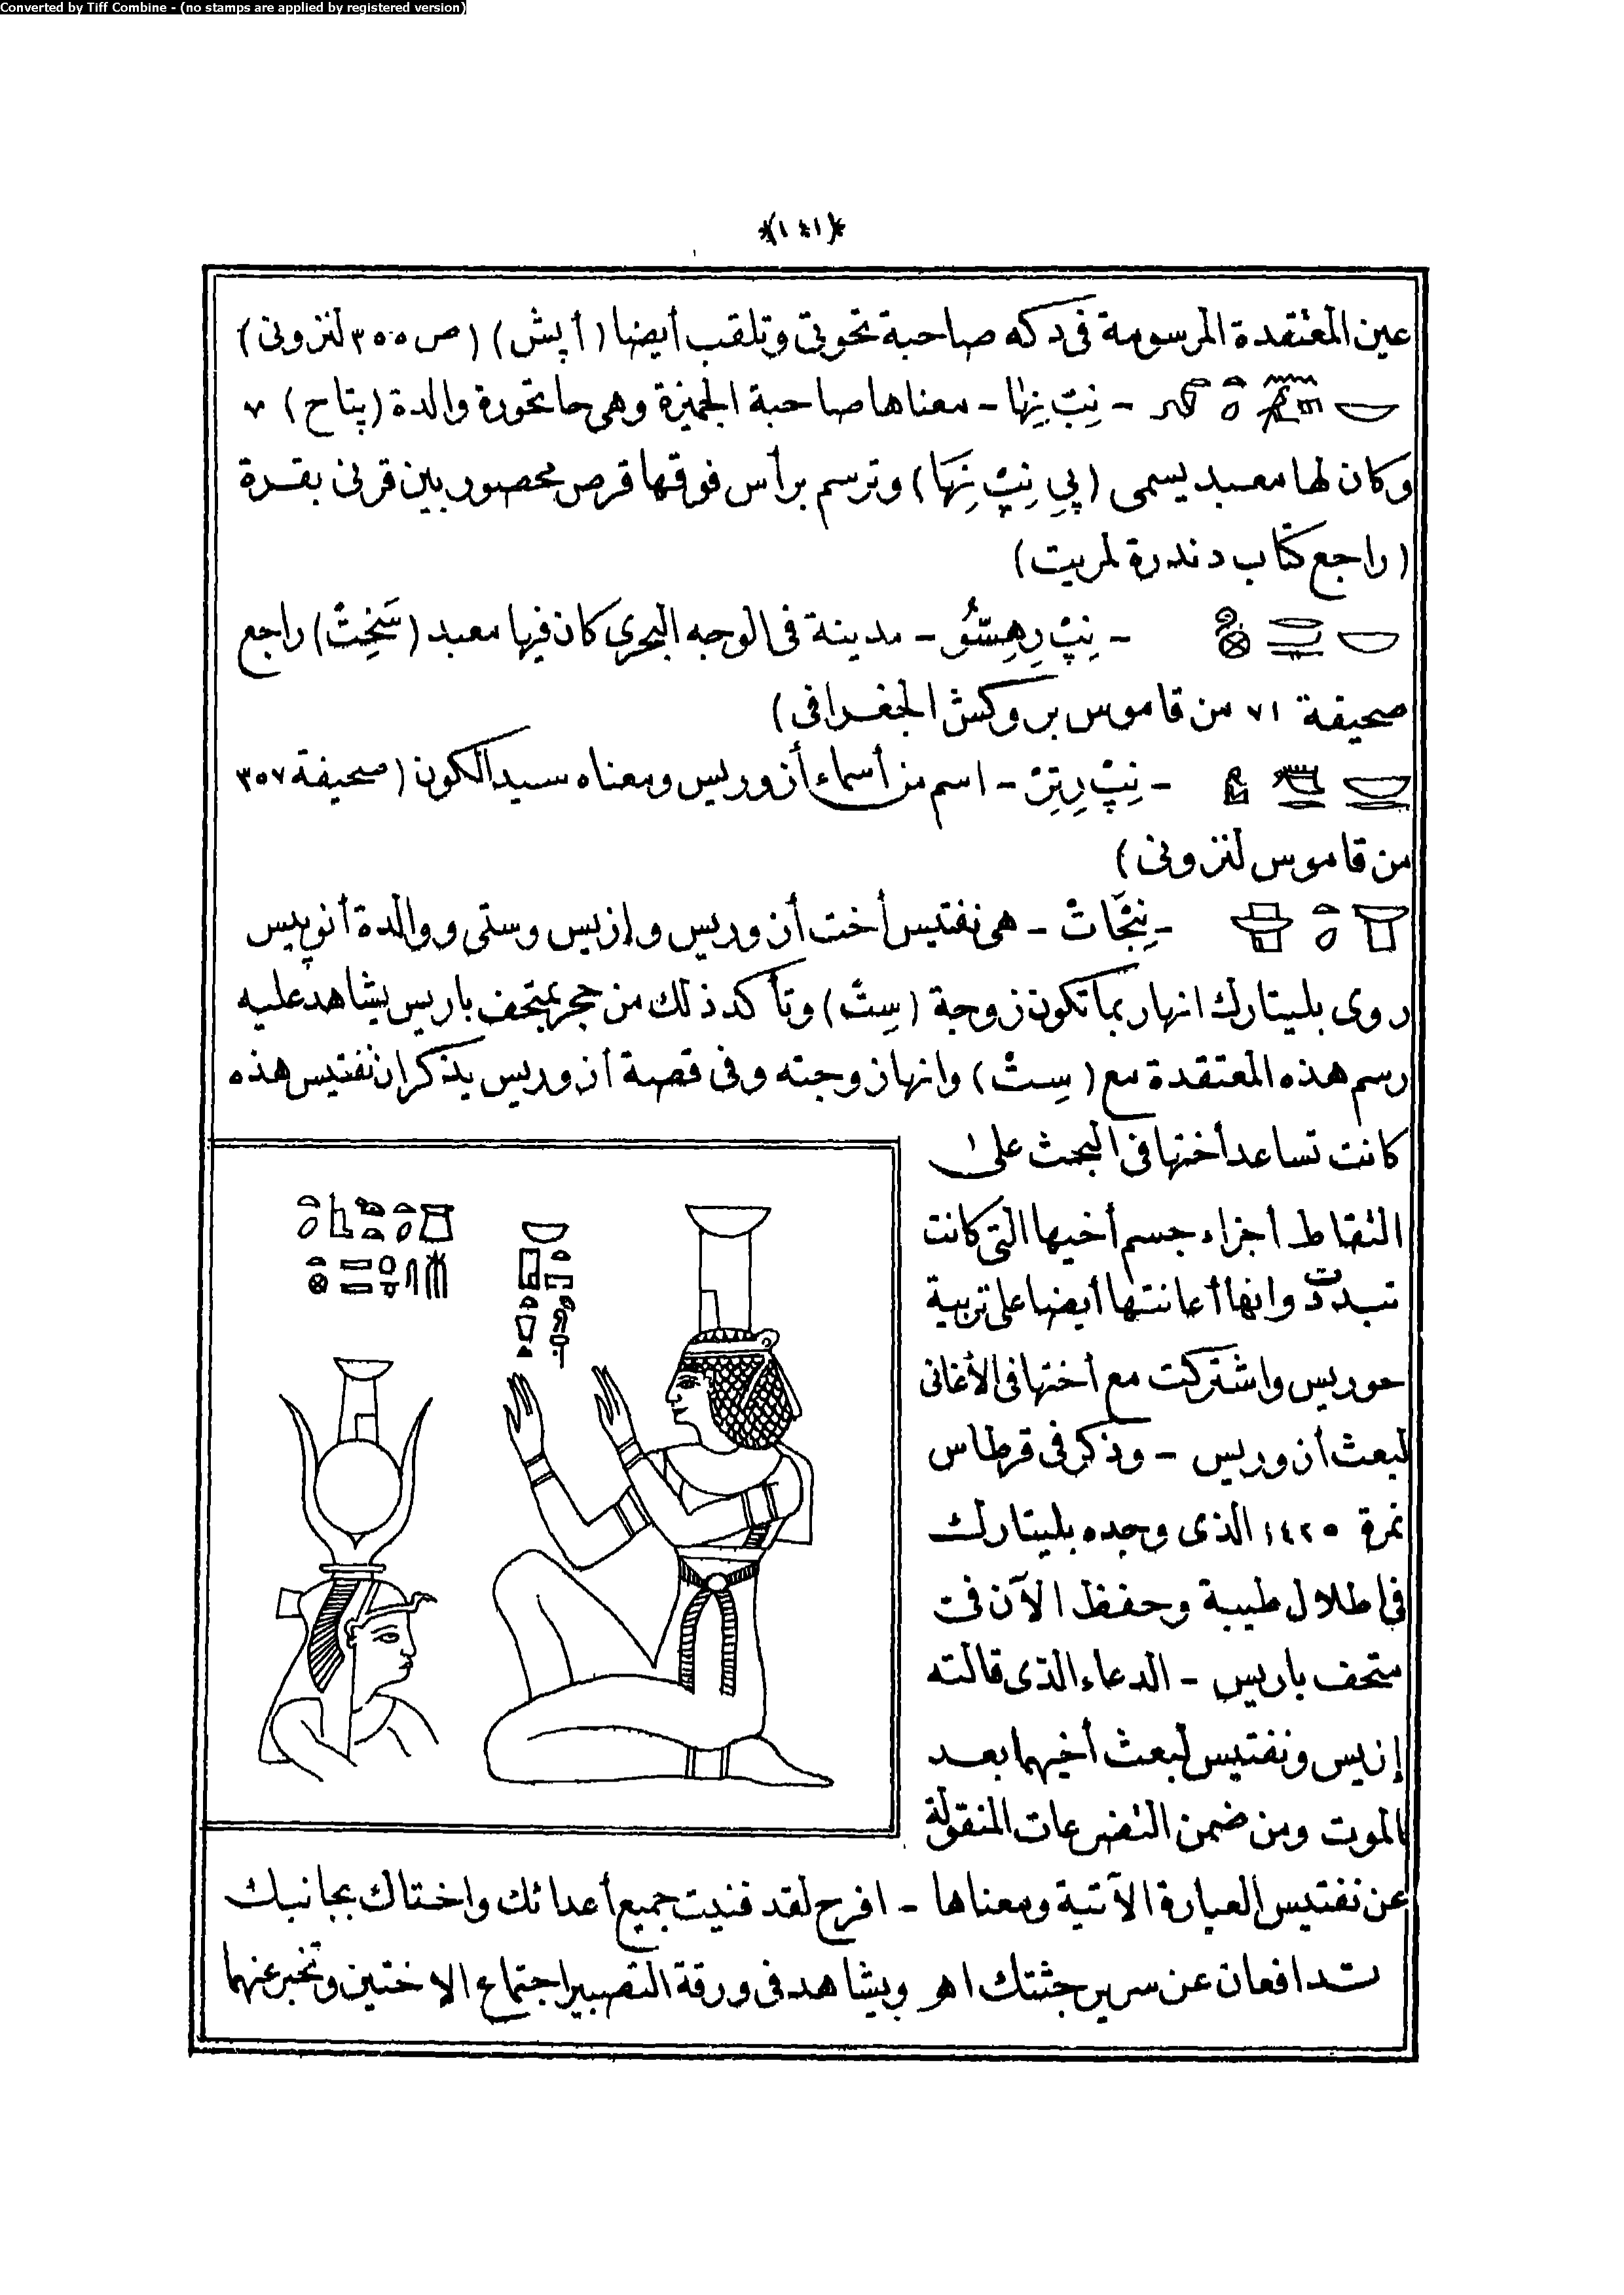 Converted by Tiff Combine - (no stamps are applied by registered version)
*(١٤١)*
عين المعتقدة المرسومة فى دكه صاحبة تحوتى وتلقب أيضا (أپش) (ص ٣٥٥ لنزونى)
- نِبْ نِهَا - معناها صاحبة الجميزة وهى حاتحورة والدة (پتاح) ٧
وكان لها معبد يسمى (پي نِبْ نِهَا) وترسم برأس فوقها قرص محصور بين قرنى بقرة
(راجع كتاب دندرة لمريت)
- نِبْ رِهِسُّو - مدينة فى الوجه البحرى كان فيها معبد (سَخِتْ) راجع
صحيفة ٧١ من قاموس بروكش الجغرافى)
- نِبْ رِتِرْ - اسم من أسماء أزوريس ومعناه سيد الكون (صحيفة ٣٥٧
من قاموس لنزونى)
- نِبْحَاتْ - هى نفتيس أخت أزوريس وإزيس وستى ووالدة أنوبيس
روى بليتارك انها ربما تكون زوجة (سِتْ) وتأكد ذلك من حجر بمتحف باريس يشاهد عليه
رسم هذه المعتقدة مع (سِتْ) وانها زوجته وفى قصة أزوريس يذكر ان نفتيس هذه
كانت تساعد أختها فى البحث على
التقاط أجزاء جسم أخيها التى كانت
تبددت وانها أعانتها أيضا على تربية
حوريس واشتركت مع أختها فى الأغانى
لبعث أزوريس - وذكر فى قرطاس
نمرة ١٤٢٥ الذى وجده بليتارك
فى اطلال طيبة وحفظ الآن فى
متحف باريس - الدعاء الذى قالته
إزيس ونفتيس لبعث أخيهما بعد
الموت ومن ضمن التضرعات المنقولة
عن نفتيس العبارة الآتية ومعناها - افرح لقد فنيت جميع أعدائك واختاك بجانبك
تدافعان عن سرير جثتك اهـ ويشاهد فى ورقة التصبير اجتماع الاختين وتخبر عنهما